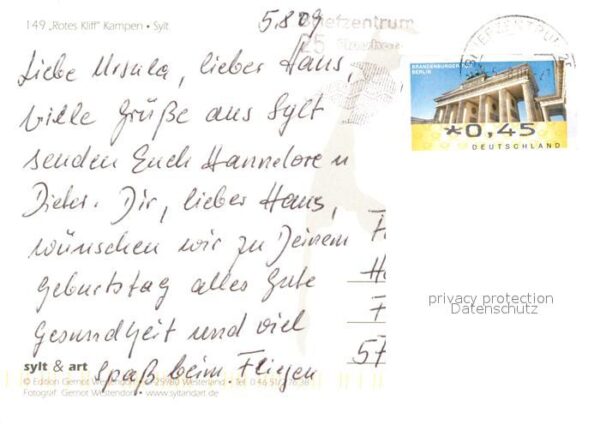 149 „Rotes Kliff" Kampen • Sylt
5.8.09
Briefzentrum
25
BRIEFZENTRUM
BRANDENBURGER TOR
BERLIN
*0,45
DEUTSCHLAND
Liebe Ursula, lieber Hans,
viele Grüße aus Sylt
senden Euch Hannelore u
Dieter. Dir, lieber Hans,
wünschen wir zu Deinem
Geburtstag alles Gute
Gesundheit und viel
Spaß beim Fliegen
F
Ha
F
57
privacy protection
Datenschutz
sylt & art
© Edition Gernot Westendorf • 25980 Westerland • Tel 0 46 51
Fotograf: Gernot Westendorf • www.syltandart.de